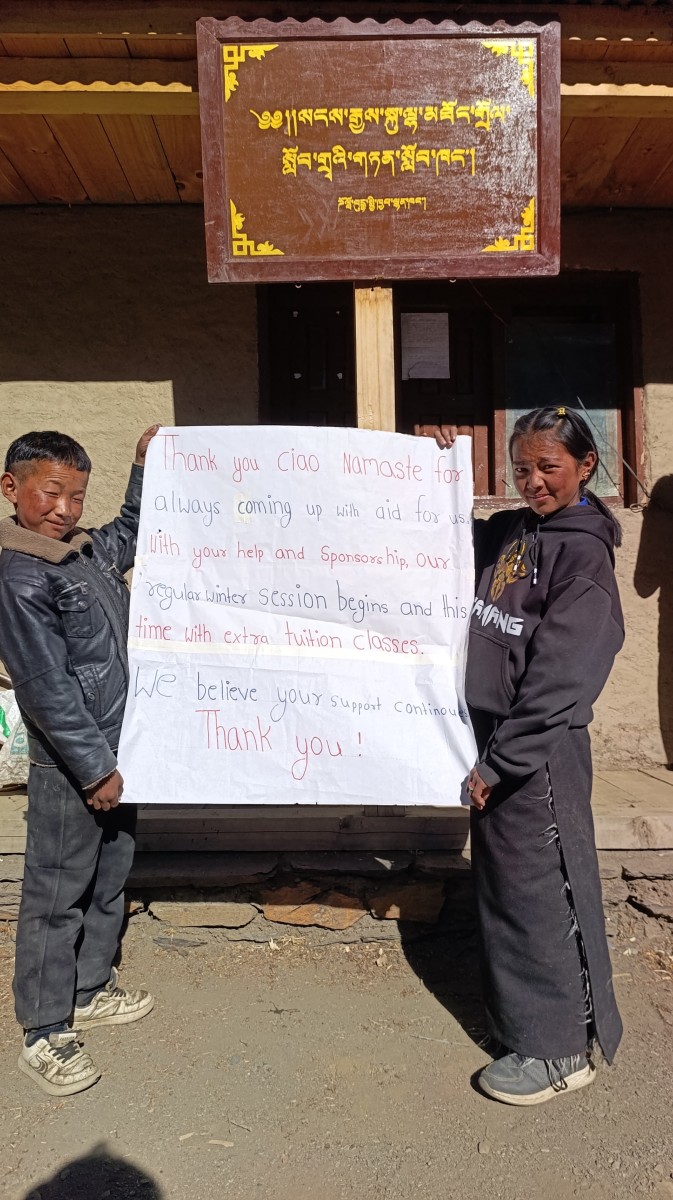 ༄༅།།སངས་རྒྱས་སྐུ་ལྔ་མཐོང་གྲོལ་
སློབ་གྲྭའི་གཏན་སློབ་ཁང་།
Thank you ciao Namaste for
always coming up with aid for us.
With your help and sponsorship, our
regular winter session begins and this
time with extra tuition classes.
We believe your support continou
Thank you !